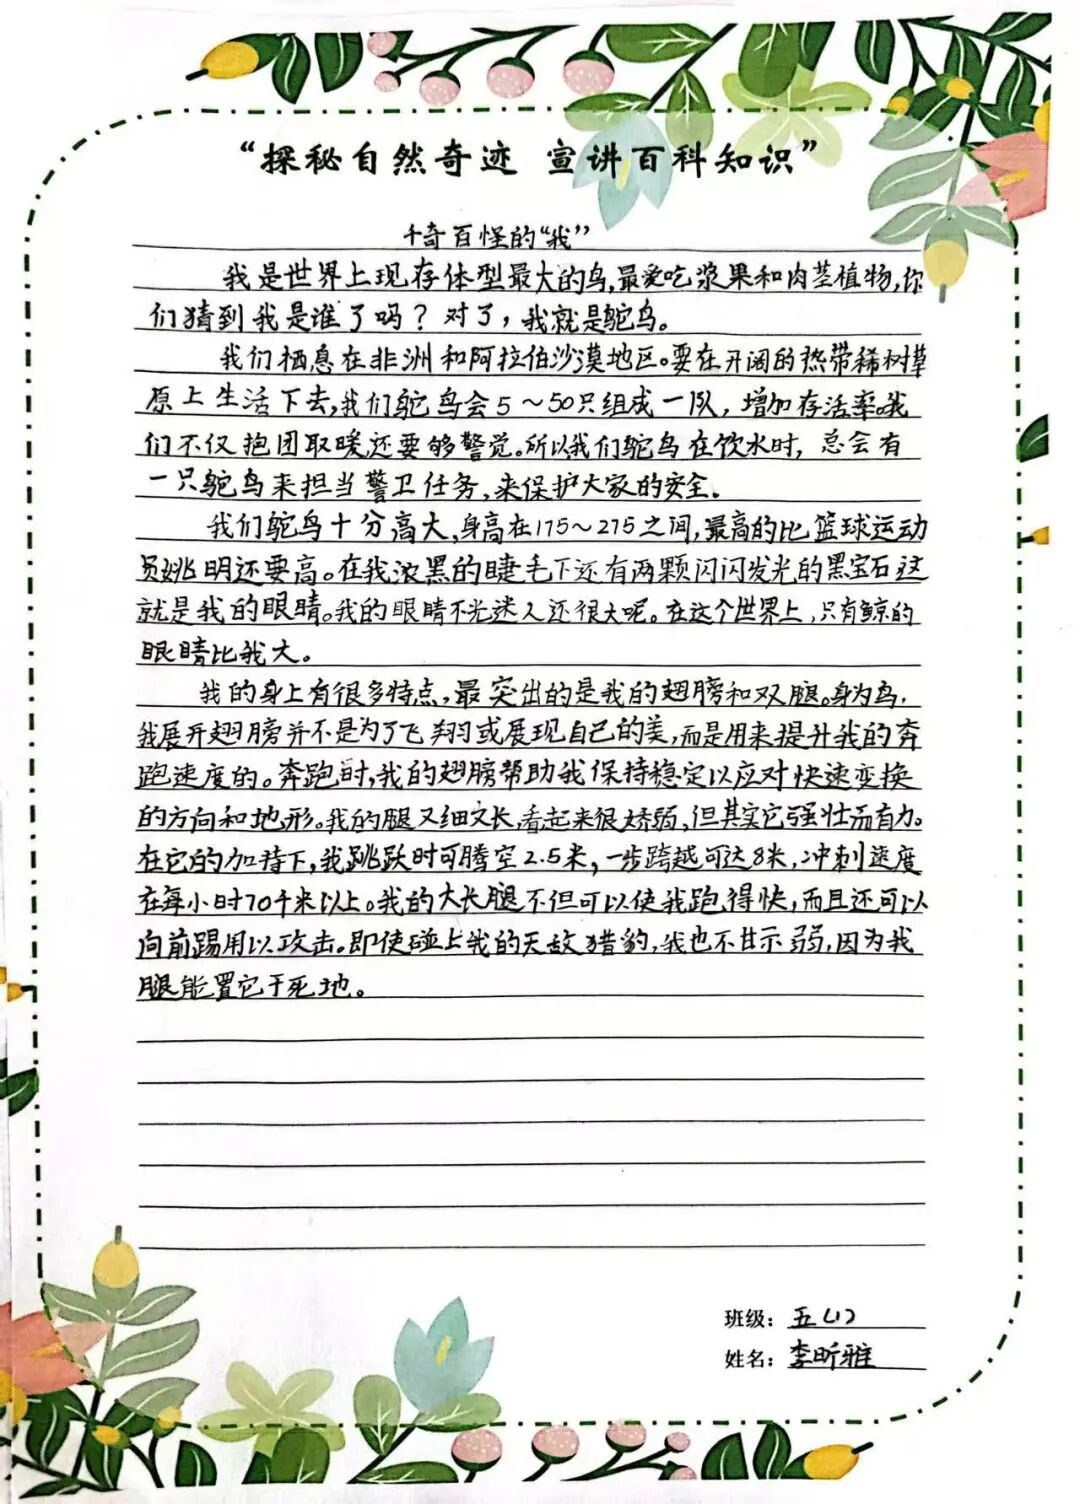 “探秘自然奇迹 宣讲百科知识”
千奇百怪的“我”
我是世界上现存体型最大的鸟,最爱吃浆果和肉茎植物,你
们猜到我是谁了吗？对了，我就是鸵鸟。
我们栖息在非洲和阿拉伯沙漠地区。要在开阔的热带稀树草
原上生活下去,我们鸵鸟会5～50只组成一队，增加存活率。我
们不仅抱团取暖,还要够警觉。所以我们鸵鸟在饮水时，总会有
一只鸵鸟来担当警卫任务,来保护大家的安全。
我们鸵鸟十分高大,身高在175～275之间,最高的比篮球运动
员姚明还要高。在我浓黑的睫毛下还有两颗闪闪发光的黑宝石这
就是我的眼睛。我的眼睛不光迷人还很大呢。在这个世界上,只有鲸的
眼睛比我大。
我的身上有很多特点,最突出的是我的翅膀和双腿。身为鸟,
我展开翅膀并不是为了飞翔或展现自己的美,而是用来提升我的奔
跑速度的。奔跑时,我的翅膀帮助我保持稳定以应对快速变换
的方向和地形。我的腿又细又长,看起来很娇弱,但其实它强壮而有力。
在它的加持下,我跳跃时可腾空2.5米,一步跨越可达8米,冲刺速度
在每小时70千米以上。我的大长腿不但可以使我跑得快,而且还可以
向前踢用以攻击。即使碰上我的天敌猎豹,我也不甘示弱,因为我
腿能置它于死地。
班级：五(1)
姓名：李昕雅